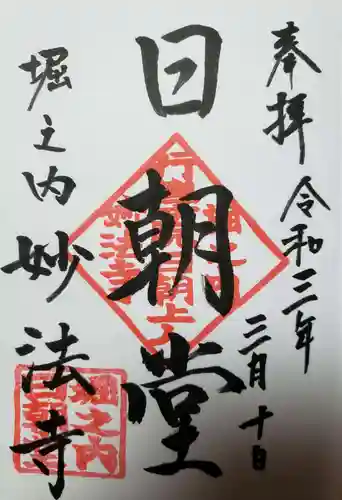 奉拝 令和三年
三月十日
日朝堂
堀之内妙法寺
堀之内